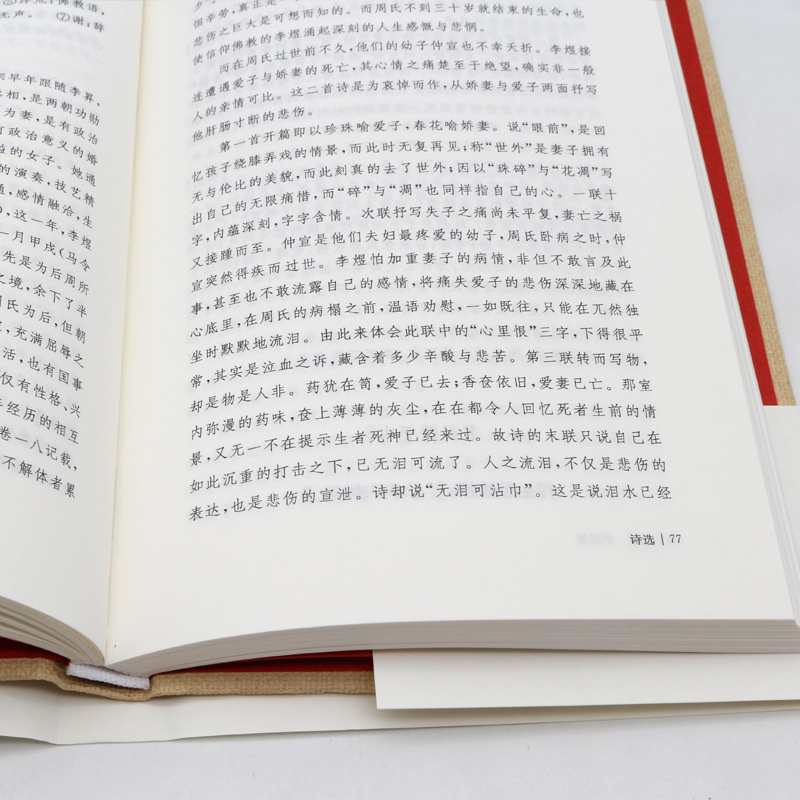 声。⑦谢:辞
早年跟随李昪、
相,是两朝功勋
为妻,是有政治
政治意义的婚
的女子。她通
的演奏,技艺精
,感情融洽,生
,这一年,李煜
一月甲戌(马令
先是为后周所
之境,余下了半
周氏为后,但朝
,充满屈辱之
活,也有国事
仅有性格、兴
经历的相互
卷一八记载,
不解体者累
惧辛劳,真正是一
悲伤之巨大是可想而知的。而周氏不到三十岁就结束的生命,也
使信仰佛教的李煜涌起深刻的人生感慨与悲悯。
而在周氏过世前不久,他们的幼子仲宣也不幸夭折。李煜接
连遭遇爱子与娇妻的死亡,其心情之痛楚至于绝望,确实非一般
人的亲情可比。这二首诗是为哀悼而作,从娇妻与爱子两面抒写
他肝肠寸断的悲伤。
第一首开篇即以珍珠喻爱子,春花喻娇妻。说“眼前”,是回
忆孩子绕膝弄戏的情景,而此时无复再见;称“世外”是妻子拥有
无与伦比的美貌,而此刻真的去了世外;因以“珠碎”与“花凋”写
出自己的无限痛惜,而“碎”与“凋”也同样指自己的心。一联十
字,内蕴深刻,字字含情。次联抒写失子之痛尚未平复,妻亡之祸
又接踵而至。仲宣是他们夫妇最疼爱的幼子,周氏卧病之时,仲
宣突然得疾而过世。李煜怕加重妻子的病情,非但不敢言及此
事,甚至也不敢流露自己的感情,将痛失爱子的悲伤深深地藏在
心底里,在周氏的病榻之前,温语劝慰,一如既往,只能在兀然独
坐时默默地流泪。由此来体会此联中的“心里恨”三字,下得很平
常,其实是泣血之诉,藏含着多少辛酸与悲苦。第三联转而写物,
却是物是人非。药犹在笥,爱子已去;香奁依旧,爱妻已亡。那室
内弥漫的药味,奁上薄薄的灰尘,在在都令人回忆死者生前的情
景,又无一不在提示生者死神已经来过。故诗的末联只说自己在
如此沉重的打击之下,已无泪可流了。人之流泪,不仅是悲伤的
表达,也是悲伤的宣泄。诗却说“无泪可沾巾”。这是说泪水已经
诗选 | 77